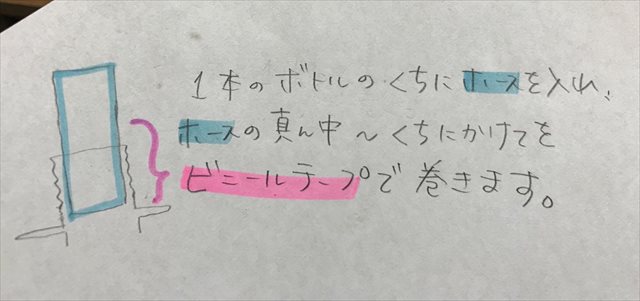 1本のボトルのくちにホースを入れ、
ホースの真ん中〜くちにかけてを
ビニールテープで巻きます。